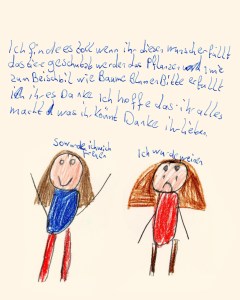 Ich finde es toll wenn ihr diesen wunsch erfüllt
das tiere geschützt werden das Pflanzen wie
zum Beischbil wie Bäume Blumen Bitte erfüllt
ihr es Danke Ich hoffe das ihr alles
macht was ihr könnt Danke ihr lieben
So würde ich mich
freuen
Ich würde weinen